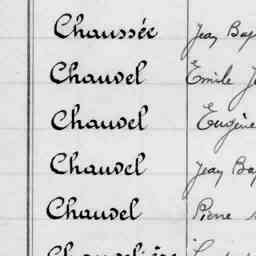 Chaussée Jean Bap
Chauvel Emile Je
Chauvel Eugène
Chauvel Jean Bap
Chauvel Pierre